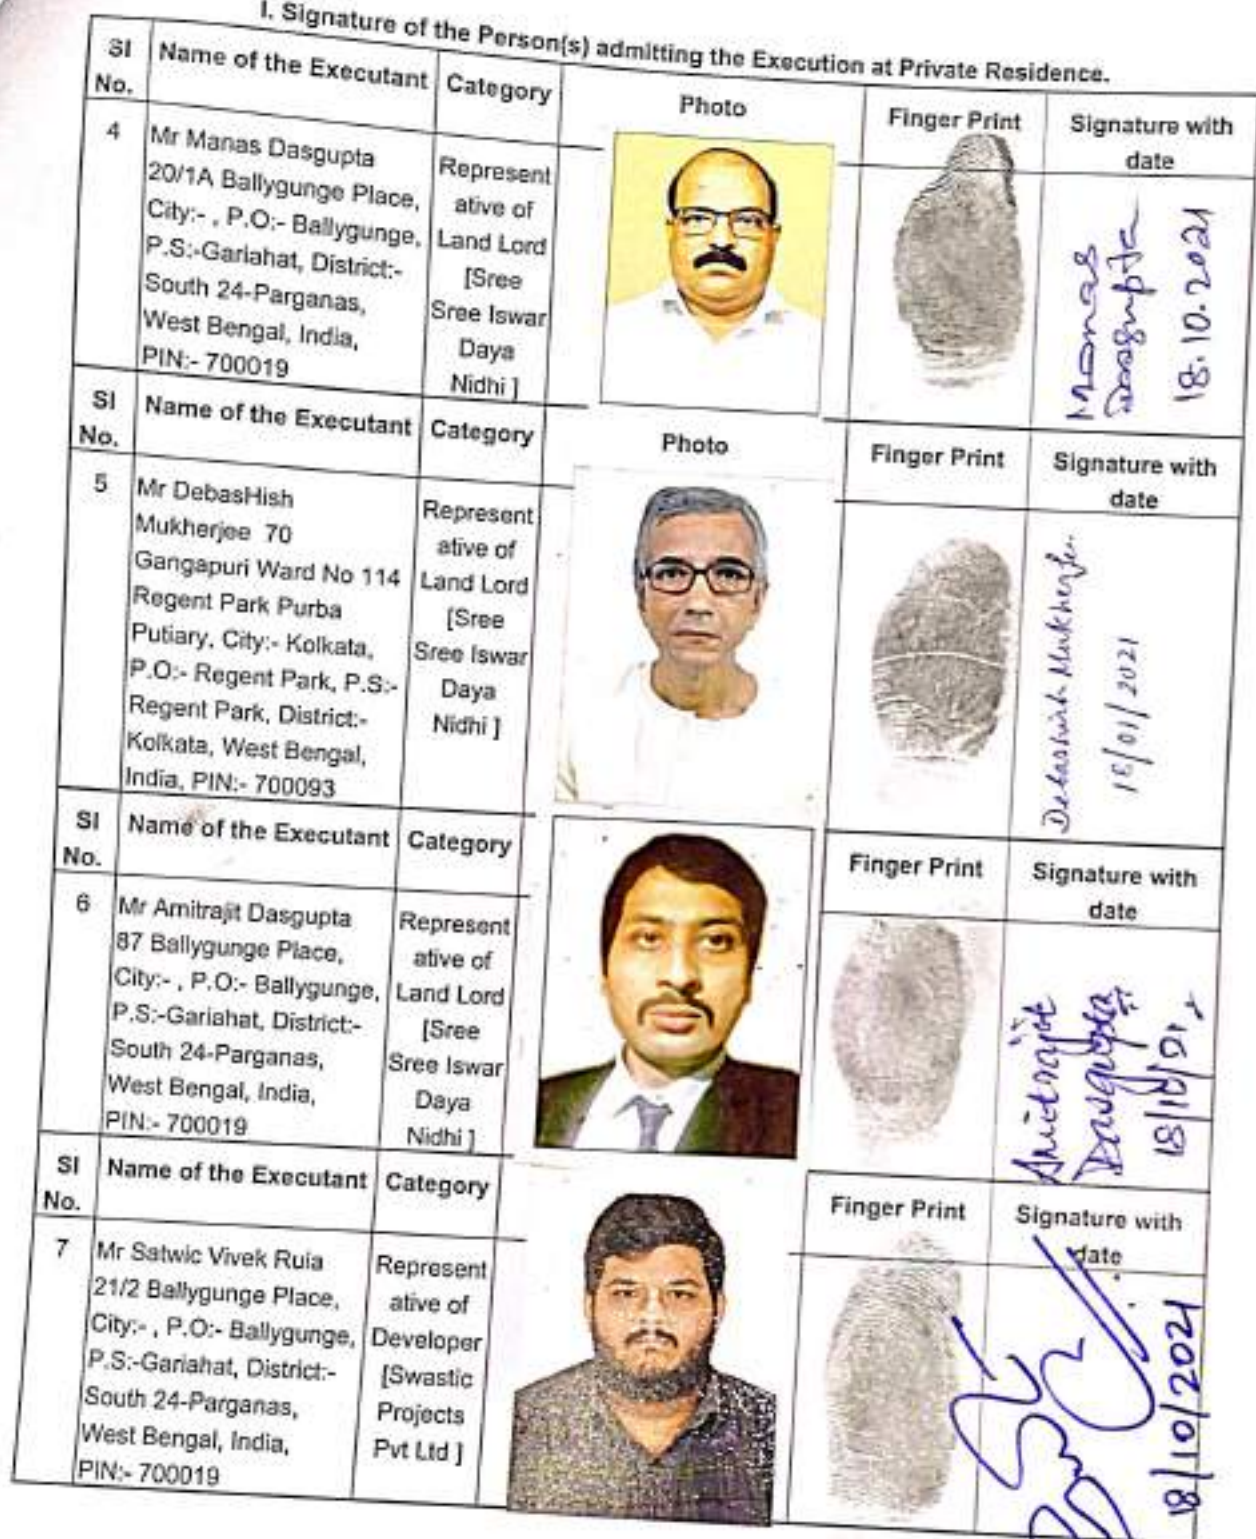 I. Signature of the Person(s) admitting the Execution at Private Residence.
Sl No. Name of the Executant Category Photo Finger Print Signature with date
4
Mr Manas Dasgupta
20/1A Ballygunge Place,
City:- , P.O:- Ballygunge,
P.S:-Gariahat, District:-
South 24-Parganas,
West Bengal, India,
PIN:- 700019
Represent
ative of
Land Lord
[Sree
Sree Iswar
Daya
Nidhi ]
Manas
Dasgupta
18.10.2021
Sl No. Name of the Executant Category Photo Finger Print Signature with date
5
Mr DebasHish
Mukherjee 70
Gangapuri Ward No 114
Regent Park Purba
Putiary, City:- Kolkata,
P.O:- Regent Park, P.S:-
Regent Park, District:-
Kolkata, West Bengal,
India, PIN:- 700093
Represent
ative of
Land Lord
[Sree
Sree Iswar
Daya
Nidhi ]
Debashish Mukherjee
18/01/2021
Sl No. Name of the Executant Category Finger Print Signature with date
6
Mr Amitrajit Dasgupta
87 Ballygunge Place,
City:- , P.O:- Ballygunge,
P.S:-Gariahat, District:-
South 24-Parganas,
West Bengal, India,
PIN:- 700019
Represent
ative of
Land Lord
[Sree
Sree Iswar
Daya
Nidhi ]
Amitrajit
Dasgupta
Sl No. Name of the Executant Category Finger Print Signature with date
7
Mr Satwic Vivek Ruia
21/2 Ballygunge Place,
City:- , P.O:- Ballygunge,
P.S:-Gariahat, District:-
South 24-Parganas,
West Bengal, India,
PIN:- 700019
Represent
ative of
Developer
[Swastic
Projects
Pvt Ltd ]
18/10/2021